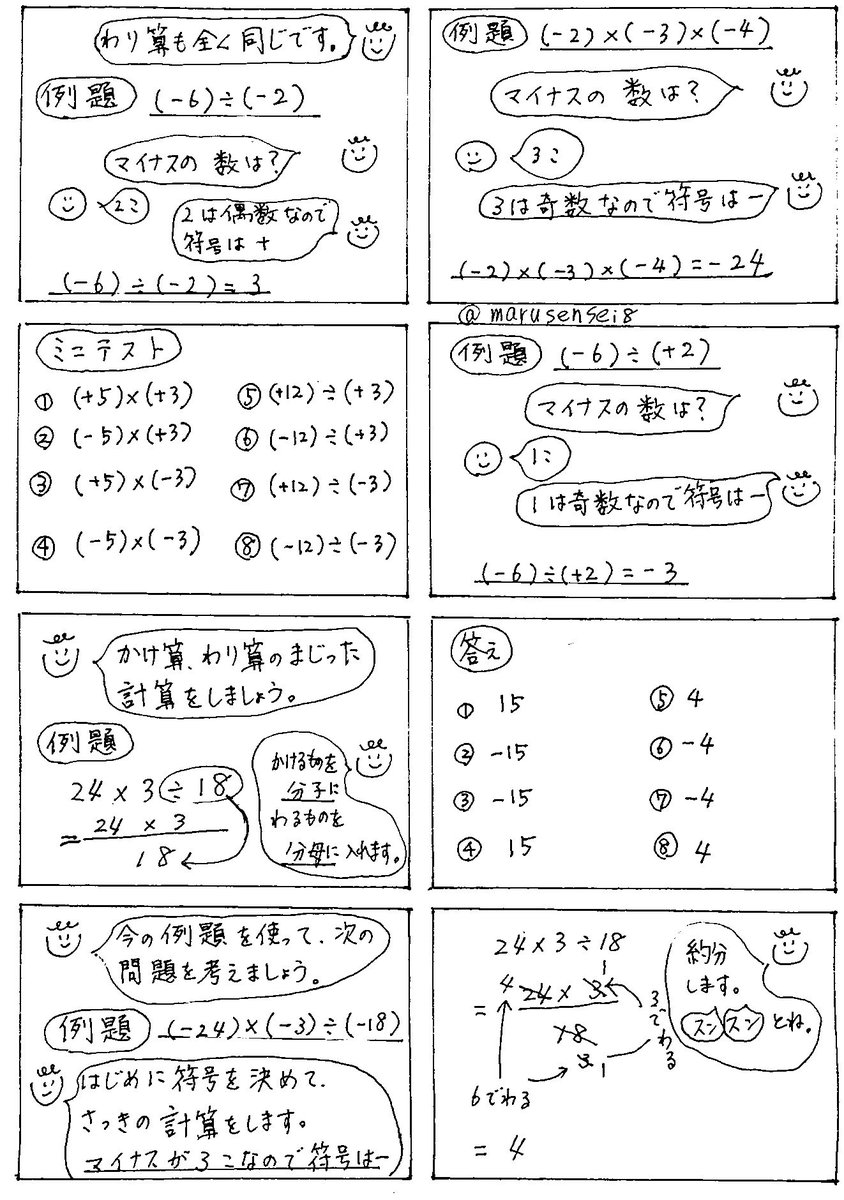 例題 (-2)×(-3)×(-4)
マイナスの 数は?
3こ
3は奇数なので符号はー
(-2)×(-3)×(-4)=-24
@marusensei8
わり算も全く同じです。
例題 (-6)÷(-2)
マイナスの 数は?
2こ
2は偶数なので
符号は+
(-6)÷(-2)=3
例題 (-6)÷(+2)
マイナスの 数は?
1こ
1は奇数なので符号はー
(-6)÷(+2)=-3
ミニテスト
① (+5)×(+3)
② (-5)×(+3)
③ (+5)×(-3)
④ (-5)×(-3)
⑤ (+12)÷(+3)
⑥ (-12)÷(+3)
⑦ (+12)÷(-3)
⑧ (-12)÷(-3)
答え
① 15
② -15
③ -15
④ 15
⑤ 4
⑥ -4
⑦ -4
⑧ 4
かけ算、わり算のまじった
計算をしましょう。
例題
24×3÷18
= 24 × 3
18
かけるものを
分子に
わるものを
分母に入れます。
24×3÷18
1
4 24× 3
=
18
3 1
3でわる
6でわる
= 4
約分
します。
スン スン とね。
今の例題を使って、次の
問題を考えましょう。
例題 (-24)×(-3)÷(-18)
はじめに符号を決めて、
さっきの計算をします。
マイナスが3こなので符号はー